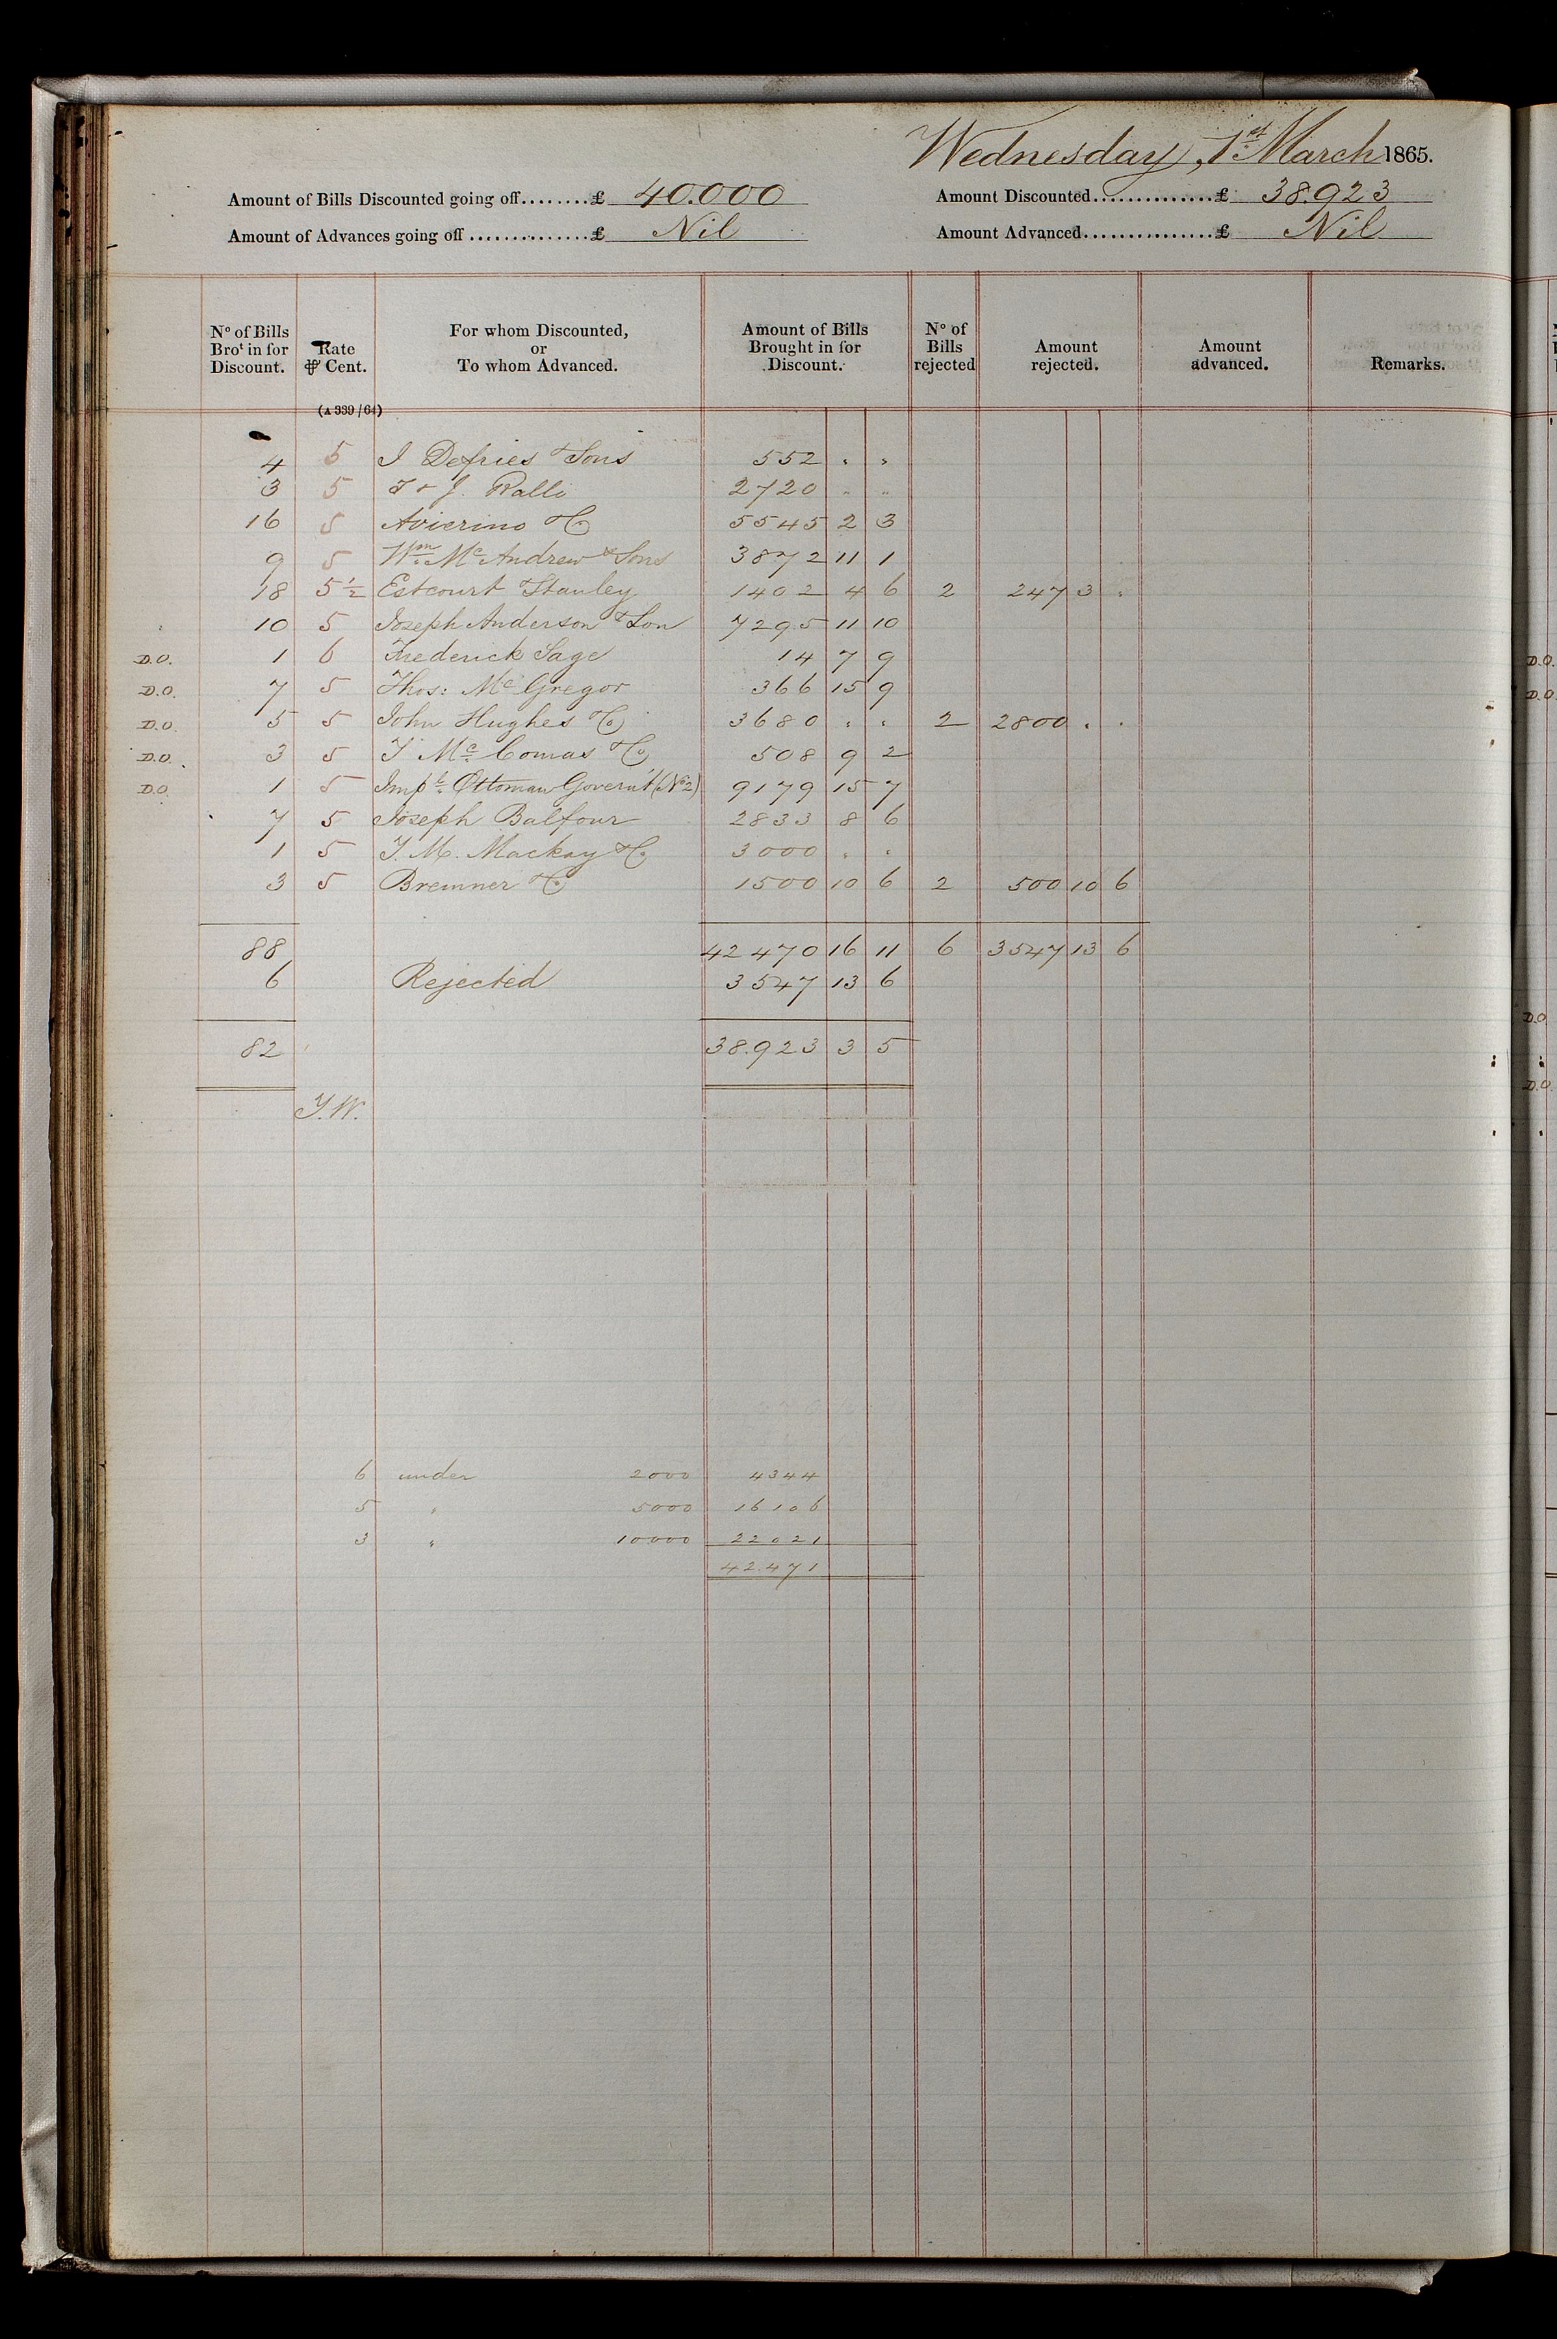 Wednesday, 1st March 1865.
Amount of Bills Discounted going off........£ 40.000 Amount Discounted..............£ 38.923
Amount of Advances going off..............£ Nil Amount Advanced................£ Nil
No of Bills Brot in for Discount. Rate ⅌ Cent. For whom Discounted, or To whom Advanced. Amount of Bills Brought in for Discount. No of Bills rejected Amount rejected. Amount advanced. Remarks.
(A 339/64)
4 5 I Defries & Sons 552 " "
3 5 T & J. Ralli 2720 " "
16 5 Avierino & Co 5545 2 3
9 5 Wm McAndrew & Sons 3872 11 1
18 5 1/2 Estcourt Stanley 1402 4 6 2 247 3 "
10 5 Joseph Anderson & Son 7295 11 10
D.O. 1 6 Frederick Sage 14 7 9
D.O. 7 5 Thos: McGregor 366 15 9
D.O. 5 5 John Hughes & Co 3680 " " 2 2800 " "
D.O. 3 5 McComas & Co 508 9 2
D.O. 1 5 Impl. Ottoman Govern't (No 2) 9179 15 7
7 5 Joseph Balfour 2833 8 6
1 5 T. M. Mackay & Co 3000 " "
3 5 Bremner & Co 1500 10 6 2 500 10 6
88 42470 16 11 6 3547 13 6
6 Rejected 3547 13 6
82 38.923 3 5
6 under 2000 4344
5 " 5000 16106
3 " 10000 22021
42.471
D.O.
D.O.
D.O
D.O.